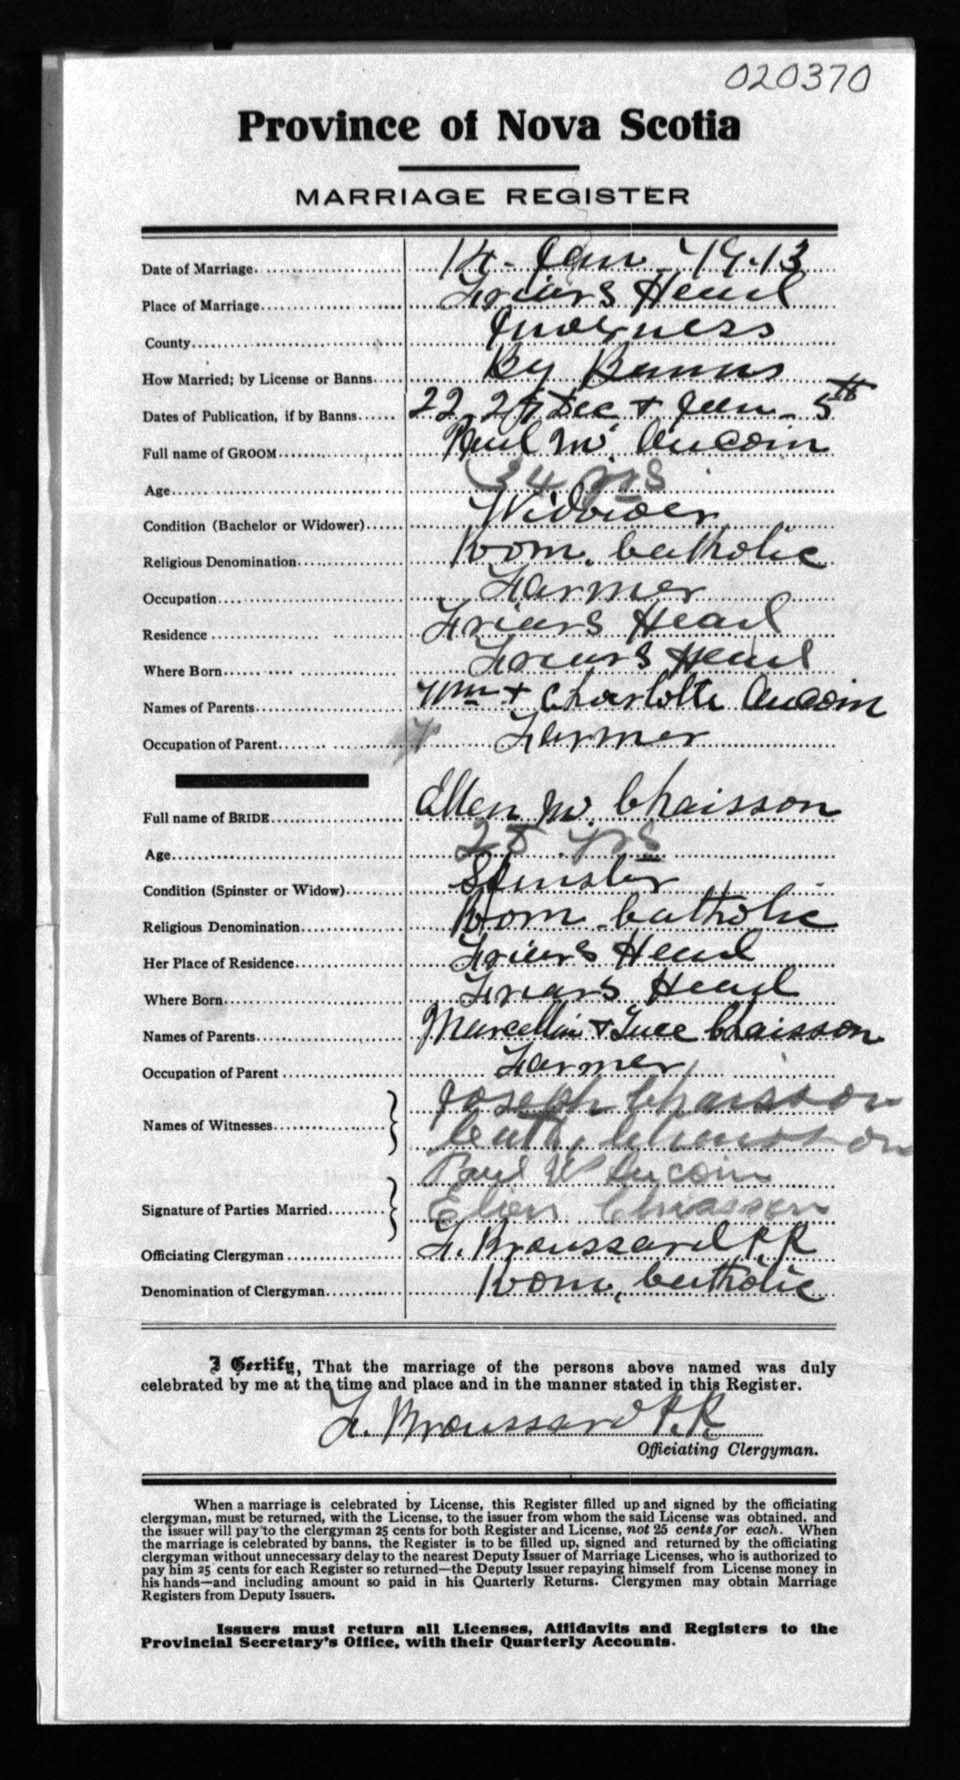 020370
Province of Nova Scotia
MARRIAGE REGISTER
Date of Marriage 14 - Jan 1913
Place of Marriage Friars Head
County Inverness
How Married; by License or Banns By Banns
Dates of Publication, if by Banns 22, 29 Dec & Jan - 5th
Full name of GROOM Paul W. Aucoin
Age 34 yrs
Condition (Bachelor or Widower) Widower
Religious Denomination Rom. Catholic
Occupation Farmer
Residence Friars Head
Where Born Friars Head
Names of Parents Wm & Charlotte Aucoin
Occupation of Parent Farmer
Full name of BRIDE Ellen M. Chaisson
Age yrs
Condition (Spinster or Widow) Spinster
Religious Denomination Rom. Catholic
Her Place of Residence Friars Head
Where Born Friars Head
Names of Parents Marcellin & Luce Chaisson
Occupation of Parent Farmer
Names of Witnesses Joseph Chaisson
Cath, Chaisson
Signature of Parties Married Paul W Aucoin
Ellen Chiasson
Officiating Clergyman F. Broussard P.R
Denomination of Clergyman Rom. Catholic
I Certify, That the marriage of the persons above named was duly
celebrated by me at the time and place and in the manner stated in this Register.
F. Broussard P.R
Officiating Clergyman.
When a marriage is celebrated by License, this Register filled up and signed by the officiating
clergyman, must be returned, with the License, to the issuer from whom the said License was obtained, and
the issuer will pay to the clergyman 25 cents for both Register and License, not 25 cents for each. When
the marriage is celebrated by banns, the Register is to be filled up, signed and returned by the officiating
clergyman without unnecessary delay to the nearest Deputy Issuer of Marriage Licenses, who is authorized to
pay him 25 cents for each Register so returned—the Deputy Issuer repaying himself from License money in
his hands—and including amount so paid in his Quarterly Returns. Clergymen may obtain Marriage
Registers from Deputy Issuers.
Issuers must return all Licenses, Affidavits and Registers to the
Provincial Secretary's Office, with their Quarterly Accounts.